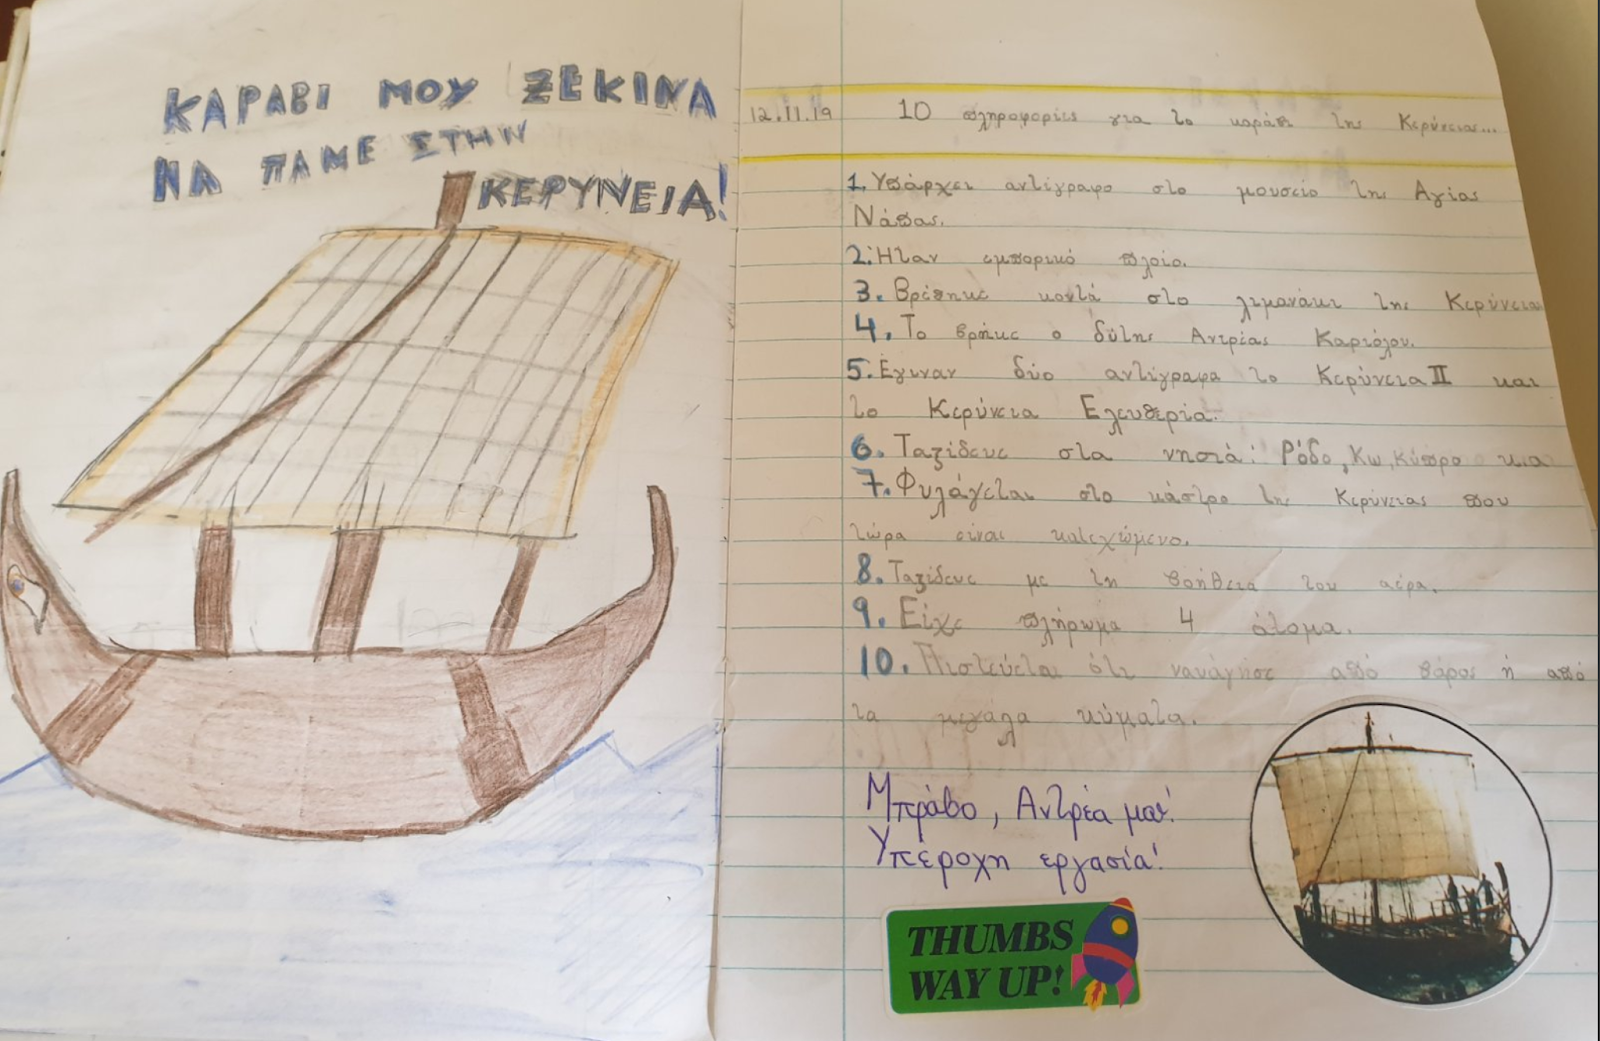 ΚΑΡΑΒΙ ΜΟΥ ΞΕΚΙΝΑ
ΝΑ ΠΑΜΕ ΣΤΗΝ
ΚΕΡΥΝΕΙΑ!
12.11.19 10 πληροφορίες για το καράβι της Κερύνειας...
1. Υπάρχει αντίγραφο στο μουσείο της Αγίας
Νάπας.
2. Ήταν εμπορικό πλοίο.
3. Βρέθηκε κοντά στο λιμανάκι της Κερύνειας
4. Το βρήκε ο δύτης Αντρέας Καριόλου.
5. Έγιναν δύο αντίγραφα το Κερύνεια II και
το Κερύνεια Ελευθερία.
6. Ταξίδευε στα νησιά: Ρόδο, Κω, Κύπρο κια
7. Φυλάγεται στο κάστρο της Κερύνειας που
τώρα είναι κατεχώμενο.
8. Ταξίδευε με τη βοήθεια του αέρα.
9. Είχε πλήρωμα 4 άτομα.
10. Πιστεύεται ότι ναυάγησε από βάρος ή από
τα μεγάλα κύματα.
Μπράβο, Αντρέα μου!
Υπέροχη εργασία!
THUMBS
WAY UP!